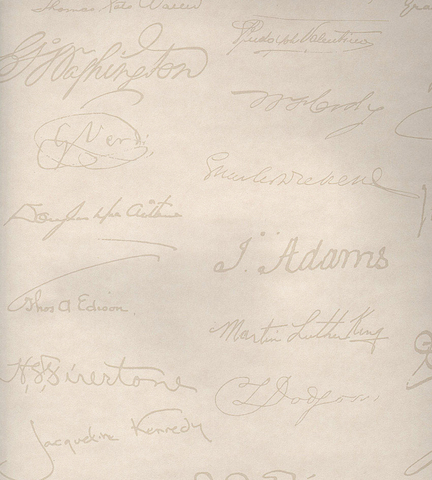 Rudolph Valentino
G Washington
W F Cody
G Verdi
Charles Dickens
Douglas MacArthur
J. Adams
Thos A Edison.
Martin Luther King
H. S. Firestone
C L Dodgson
Jacqueline Kennedy